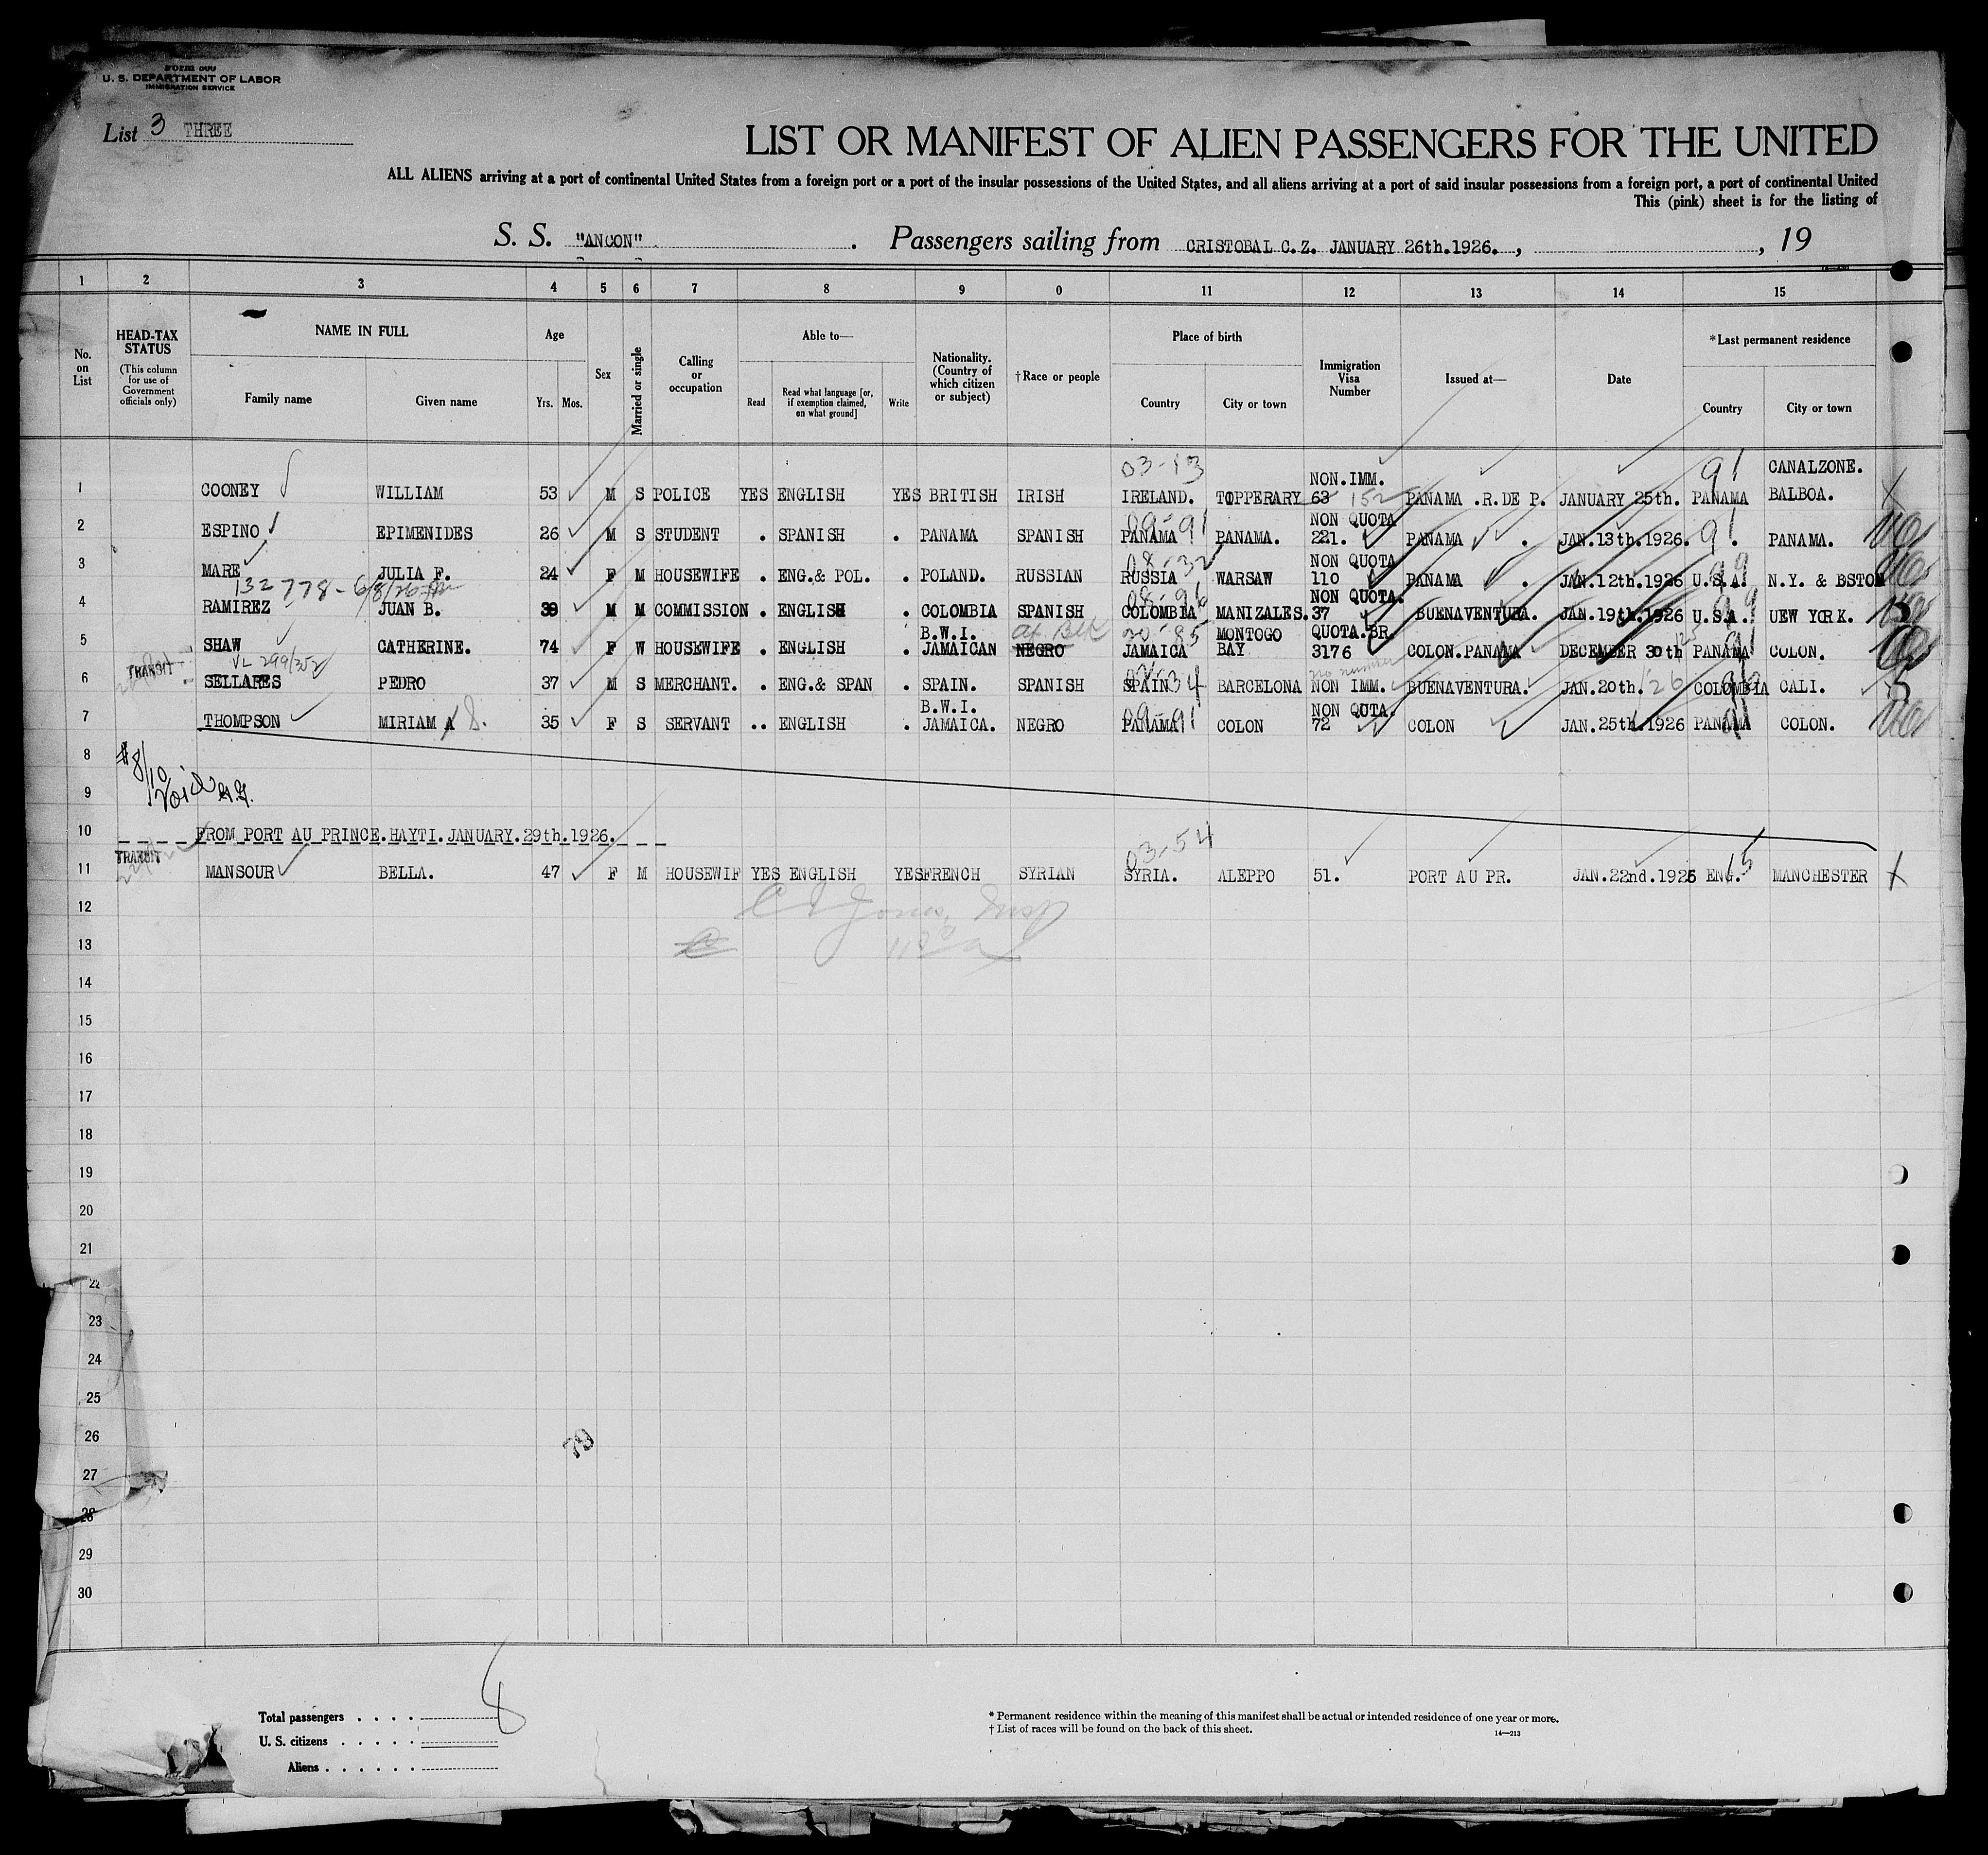 Form 500
U. S. DEPARTMENT OF LABOR
IMMIGRATION SERVICE
List 3 THREE
LIST OR MANIFEST OF ALIEN PASSENGERS FOR THE UNITED
ALL ALIENS arriving at a port of continental United States from a foreign port or a port of the insular possessions of the United States, and all aliens arriving at a port of said insular possessions from a foreign port, a port of continental United
This (pink) sheet is for the listing of
S. S. "ANCON" . Passengers sailing from CRISTOBAL C.Z. JANUARY 26th.1926. , , 19
1 2 3 4 5 6 7 8 9 0 11 12 13 14 15
No. on List
HEAD-TAX STATUS
(This column for use of Government officials only)
NAME IN FULL
Family name Given name
Age
Yrs. Mos.
Sex
Married or single
Calling or occupation
Able to—
Read Read what language [or, if exemption claimed, on what ground] Write
Nationality. (Country of which citizen or subject)
†Race or people
Place of birth
Country City or town
Immigration Visa Number
Issued at—
Date
*Last permanent residence
Country City or town
03-13 NON.IMM. 91 CANALZONE.
1 COONEY WILLIAM 53 M S POLICE YES ENGLISH YES BRITISH IRISH IRELAND. TOPPERARY 63 152 PANAMA .R.DE P. JANUARY 25th. PANAMA BALBOA.
09-91 NON QUOTA
2 ESPINO EPIMENIDES 26 M S STUDENT . SPANISH . PANAMA SPANISH PANAMA PANAMA. 221. PANAMA . JAN.13th.1926. 91 . PANAMA.
08-32 NON QUOTA 99
3 MARE JULIA F. 24 F M HOUSEWIFE . ENG.& POL. . POLAND. RUSSIAN RUSSIA WARSAW 110 PANAMA . JAN.12th.1926 U.S.A. N.Y. & BSTON
132778-6/8/26 08-96 NON QUOTA. 99
4 RAMIREZ JUAN B. 39 M M COMMISSION . ENGLISH . COLOMBIA SPANISH COLOMBIA MANIZALES. 37 BUENAVENTURA. JAN.19th.1926 U.S.A. UEW YORK.
B.W.I. Af. Blk 30-85 MONTOGO QUOTA.BR. 125 91
5 SHAW CATHERINE. 74 F W HOUSEWIFE . ENGLISH . JAMAICAN NEGRO JAMAICA BAY 3176 COLON.PANAMA DECEMBER 30th PANAMA COLON.
TRANSIT VL 299/352 no number
6 SELLARES PEDRO 37 M S MERCHANT. . ENG.& SPAN . SPAIN. SPANISH SPAIN 34 BARCELONA NON IMM. BUENAVENTURA. JAN.20th. /26 COLOMBIA CALI.
B.W.I. 09-91 NON QUTA.
7 THOMPSON MIRIAM A 8. 35 F S SERVANT .. ENGLISH . JAMAICA. NEGRO PANAMA COLON 72 COLON JAN.25th.1926 PANAMA 91 COLON.
8
#8/10
9 Void
10 FROM PORT AU PRINCE.HAYTI.JANUARY.29th.1926.
TRANSIT 03-54
11 MANSOUR BELLA. 47 F M HOUSEWIF YES ENGLISH YES FRENCH SYRIAN SYRIA. ALEPPO 51. PORT AU PR. JAN.22nd.1926 ENG. 15 MANCHESTER
12
13
14
15
16
17
18
19
20
21
22
23
24
25
26
79
27
28
29
30
Total passengers . . . . 8
U. S. citizens . . . . .
Aliens . . . . . .
* Permanent residence within the meaning of this manifest shall be actual or intended residence of one year or more.
† List of races will be found on the back of this sheet.
14—213